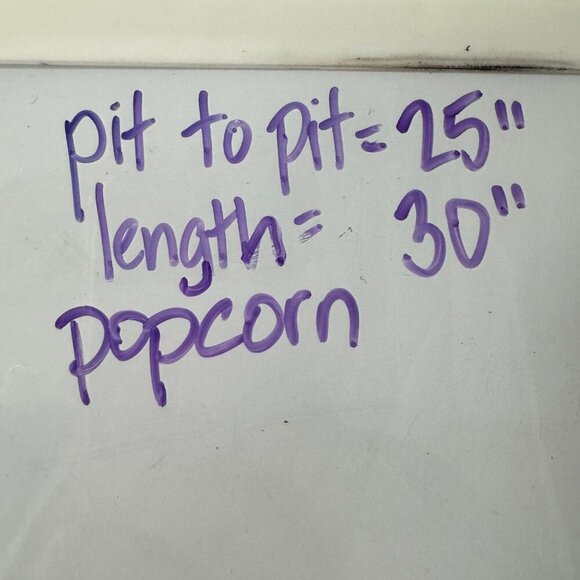 pit to pit = 25"
length = 30"
popcorn